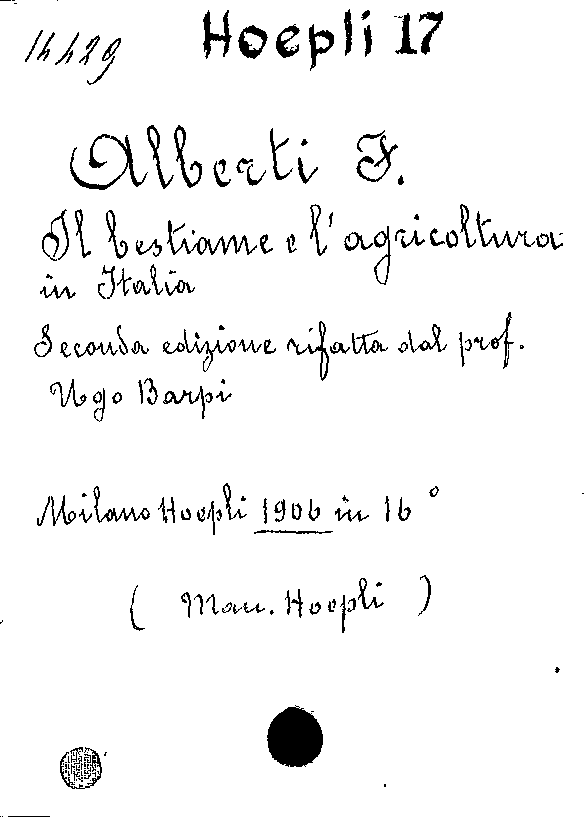 14429
Hoepli 17
Alberti F.
Il bestiame e l'agricoltura
in Italia
Seconda edizione rifatta dal prof.
Ugo Barpi
Milano Hoepli 1906 in 16°
( Man. Hoepli )